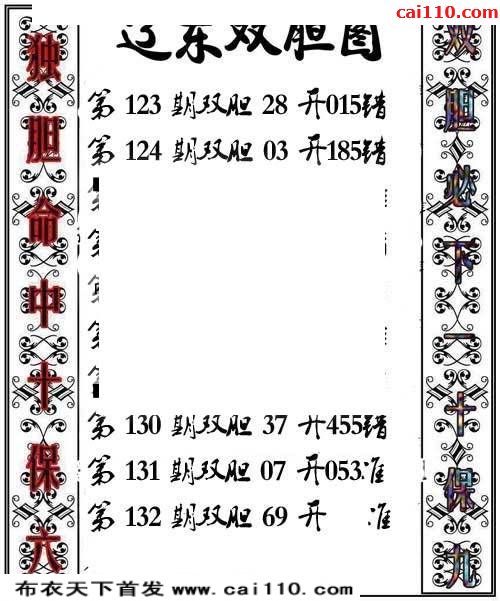 cai110.com
辽东双胆图
独胆命中十保六
双胆必下一十保九
第 123 期双胆 28 开015错
第 124 期双胆 03 开185错
第 130 期双胆 37 开455错
第 131 期双胆 07 开053准
第 132 期双胆 69 开 准
布衣天下首发 www.cai110.com